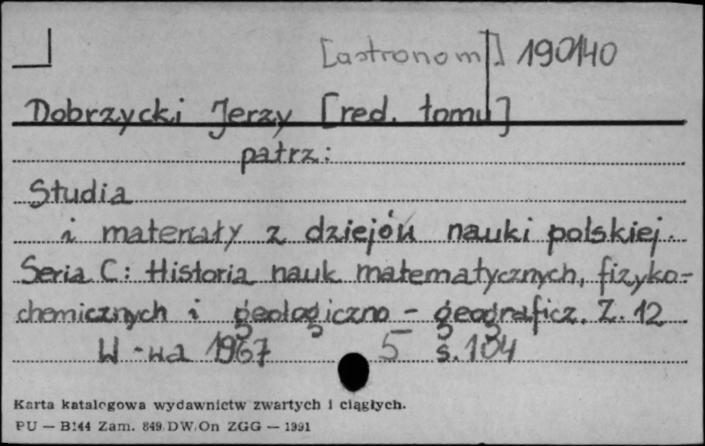 [astronom] 190140
Dobrzycki Jerzy [red. tomu]
patrz:
Studia
i materiały z dziejów nauki polskiej.
Seria C: Historia nauk matematycznych, fizyko-
chemicznych i geologiczno - geograficz. Z. 12
W-wa 1967 5 s. 184
Karta katalogowa wydawnictw zwartych i ciągłych.
PU — B144 Zam. 849 DW.On ZGG — 1991